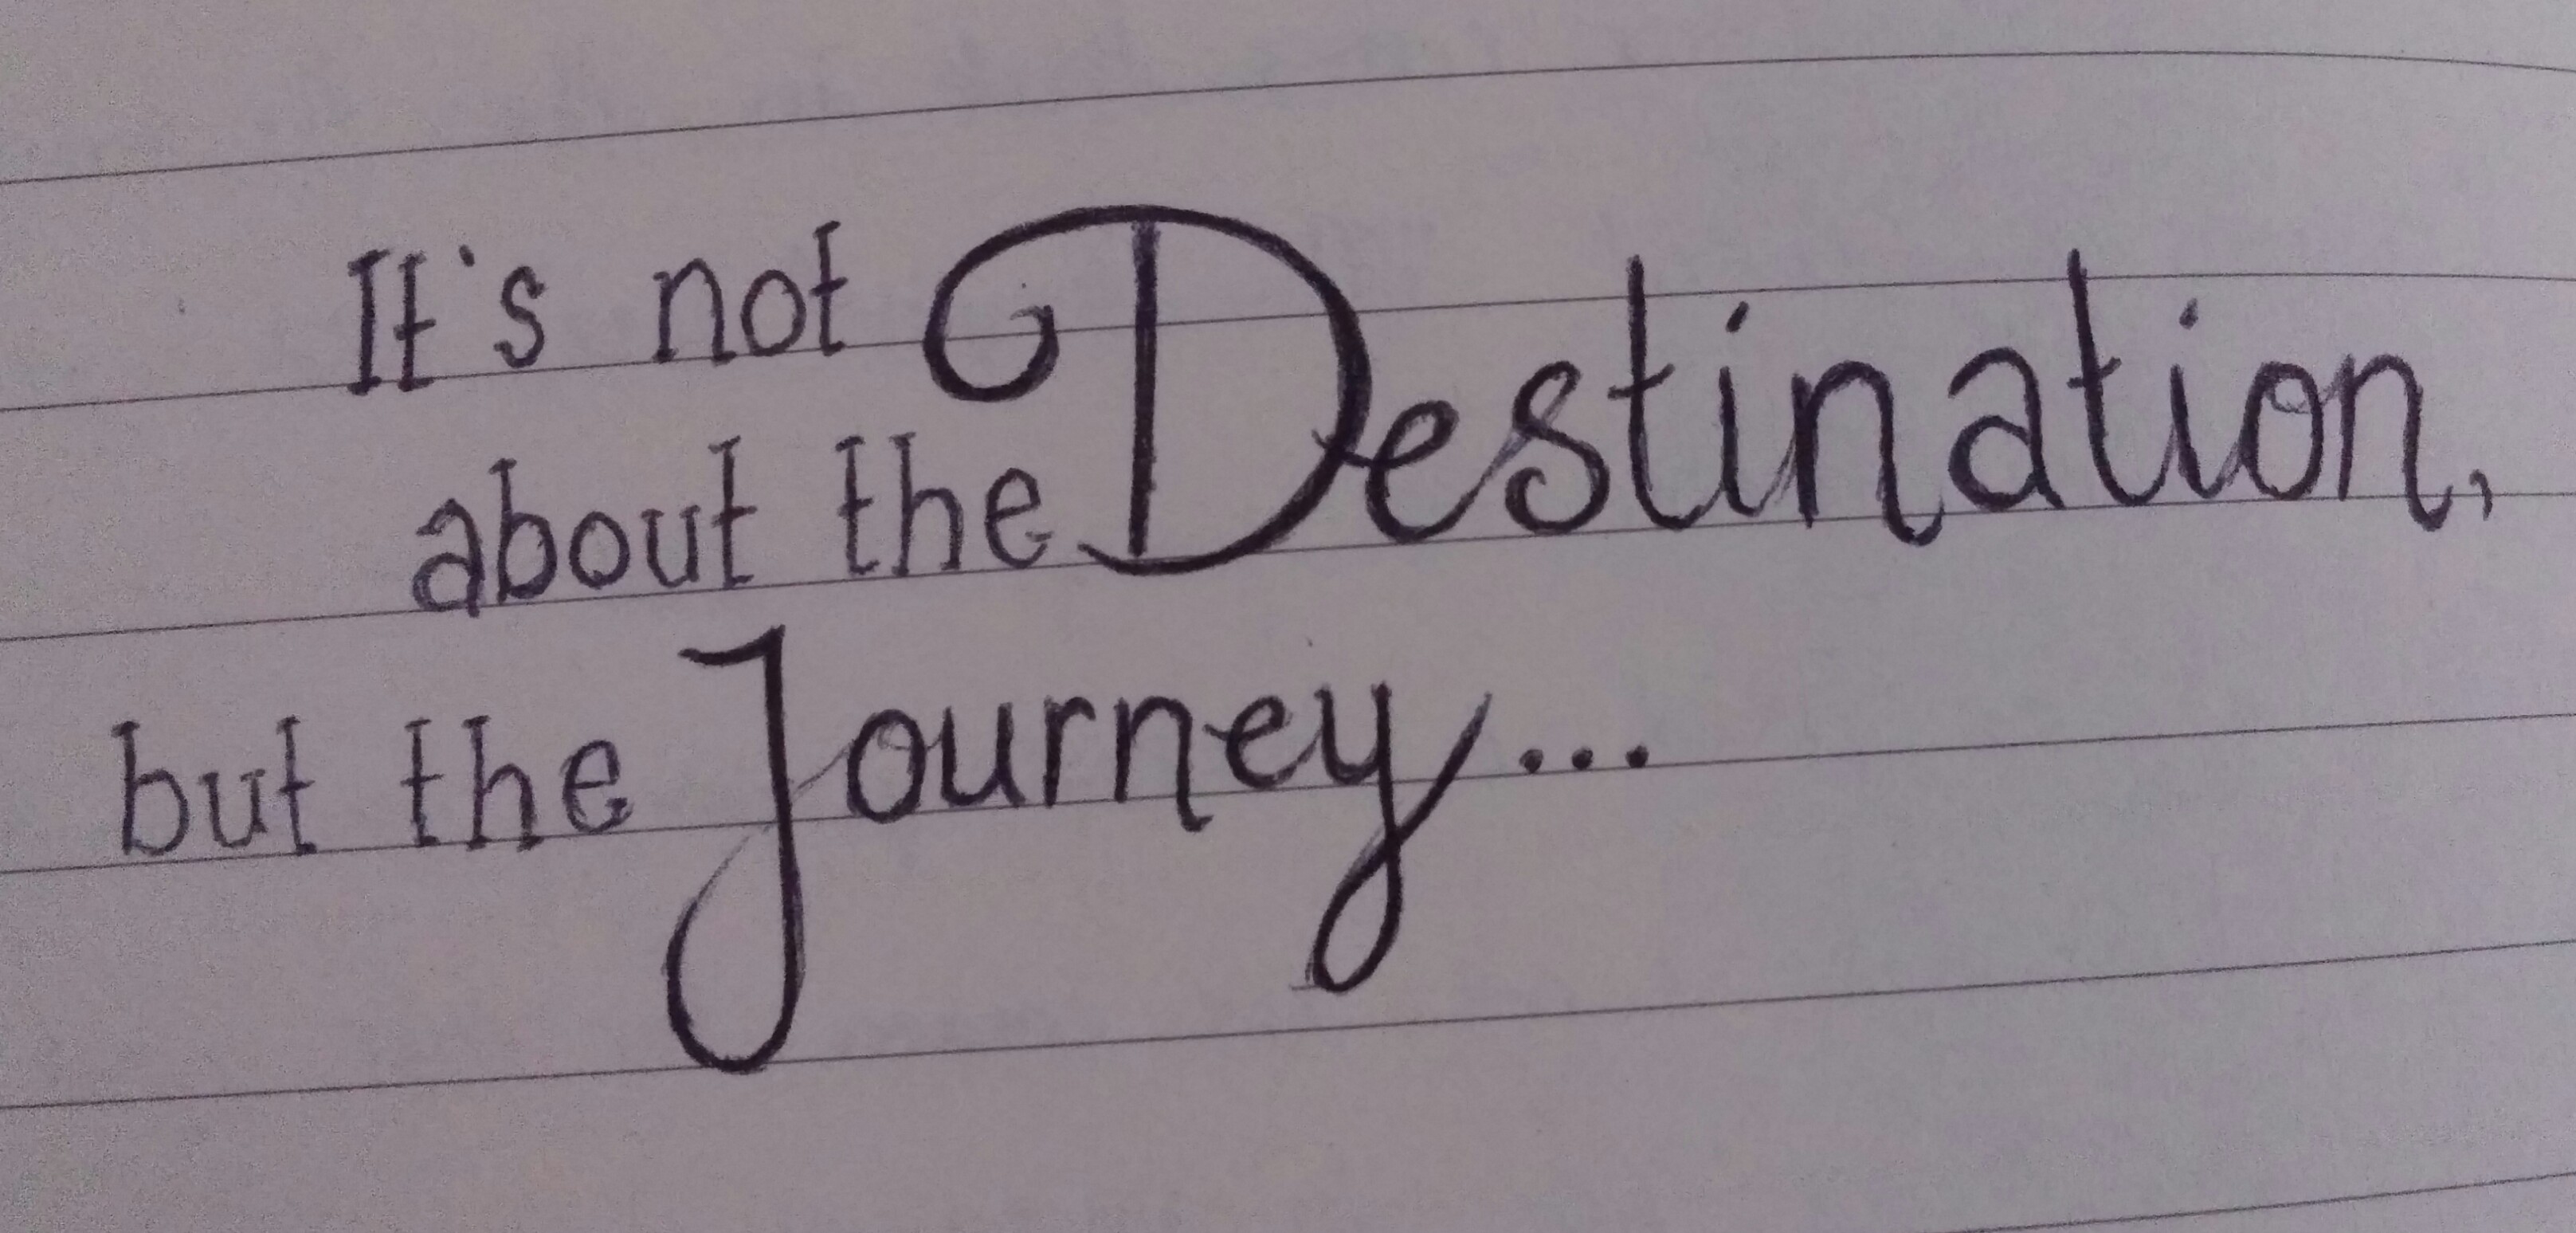 It's not
about the Destination,
but the Journey...